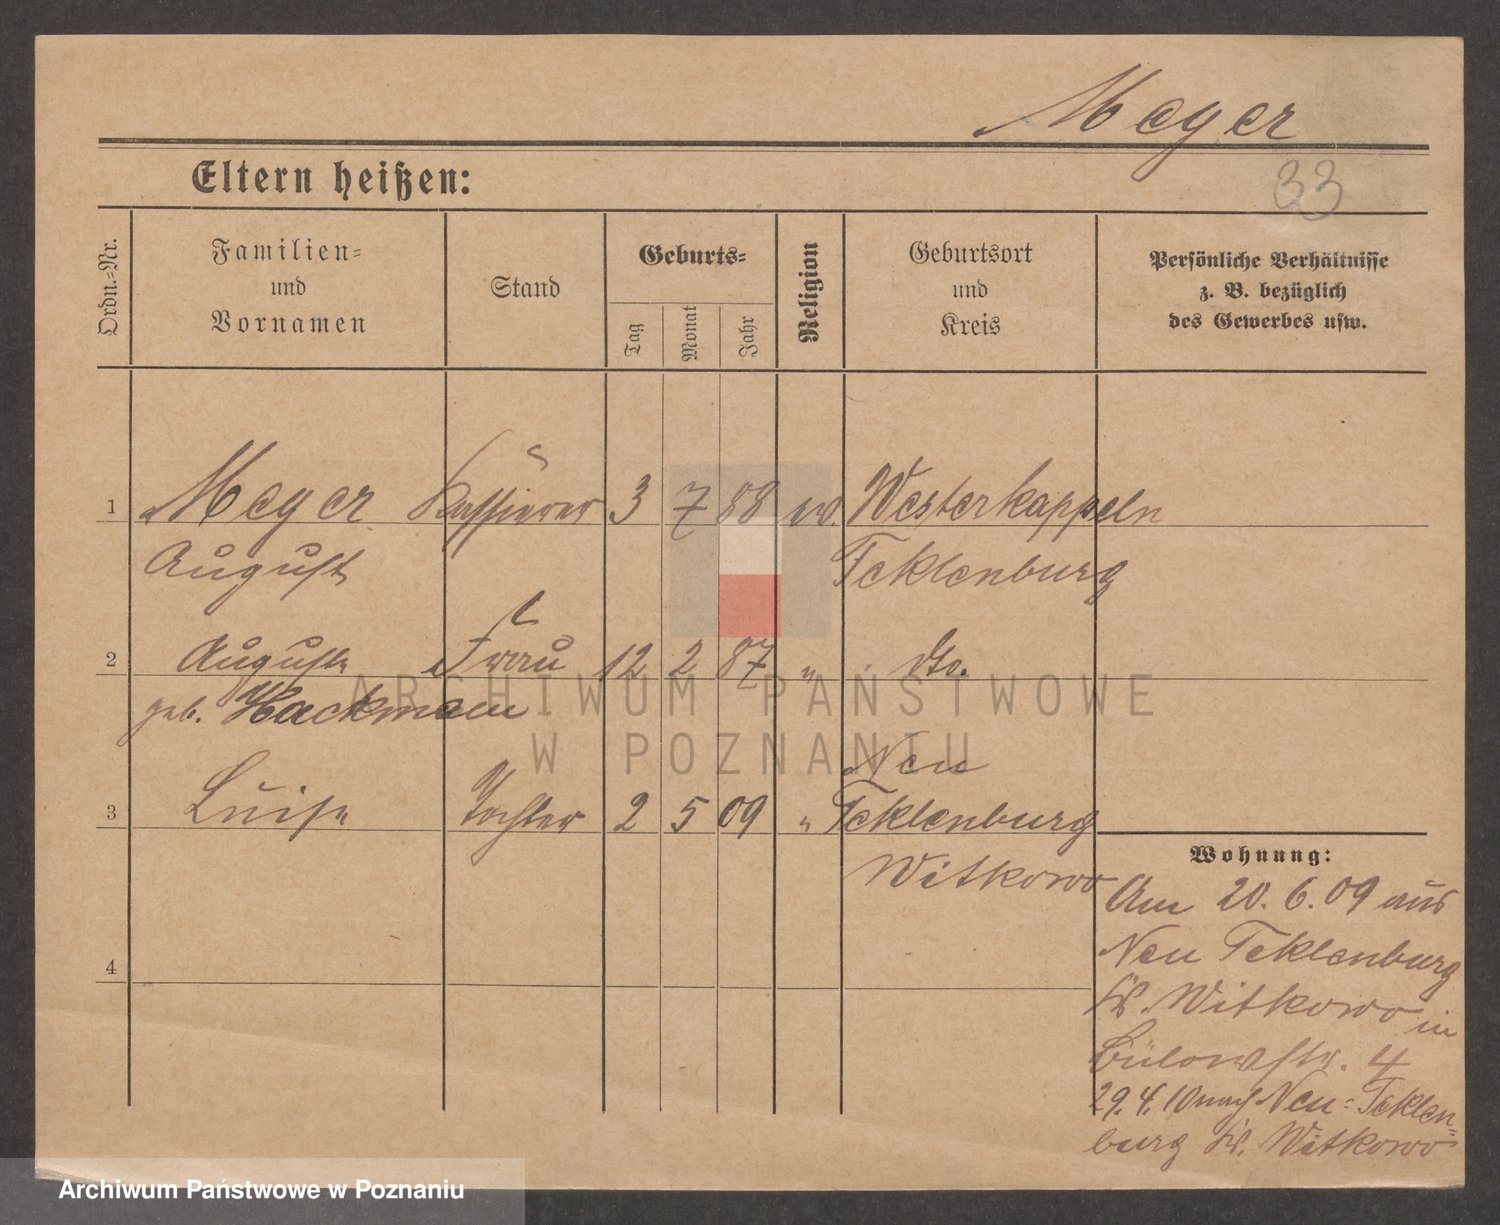 Meyer
33
Eltern heißen:
Ordn.-Nr.
Familien-
und
Vornamen
Stand
Geburts-
Tag
Monat
Jahr
Religion
Geburtsort
und
Kreis
Persönliche Verhältnisse
z. B. bezüglich
des Gewerbes usw.
1 Meyer Kassierer 3 7 88 ev. Westerkappeln
August Tecklenburg
2 Auguste Frau 12 2 87 " do.
geb. Hackmann
Neu
3 Luise Tochter 2 5 09 " Teklenburg
Witkowo
4
Wohnung:
Am 20. 6. 09 aus
Neu Teklenburg
Kr. Witkowo in
Bülowstr. 4
29. 4. 10 nach Neu-Teklen-
burg Kr. Witkowo
ARCHIWUM PAŃSTWOWE
W POZNANIU
Archiwum Państwowe w Poznaniu